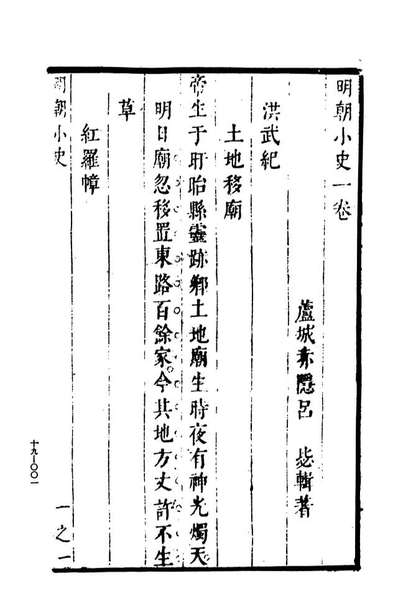 明朝小史一卷
蘆城赤隱呂 毖輯著
洪武紀
土地移廟
帝生于盱眙縣靈跡鄉土地廟生時夜有神光燭天
明日廟忽移置東路百餘家今其地方丈許不生
草
紅羅幛
明朝小史
一之一
十九—〇〇一